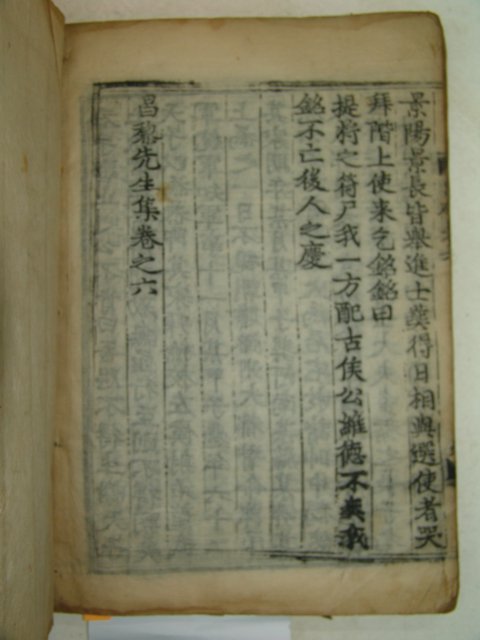 景陽景長皆舉進士葬得日相與遣使者哭
拜階上使来乞銘銘曰
提將之符尸我一方配古侯公維德不爽我
銘不亡後人之慶
昌黎先生集卷之六